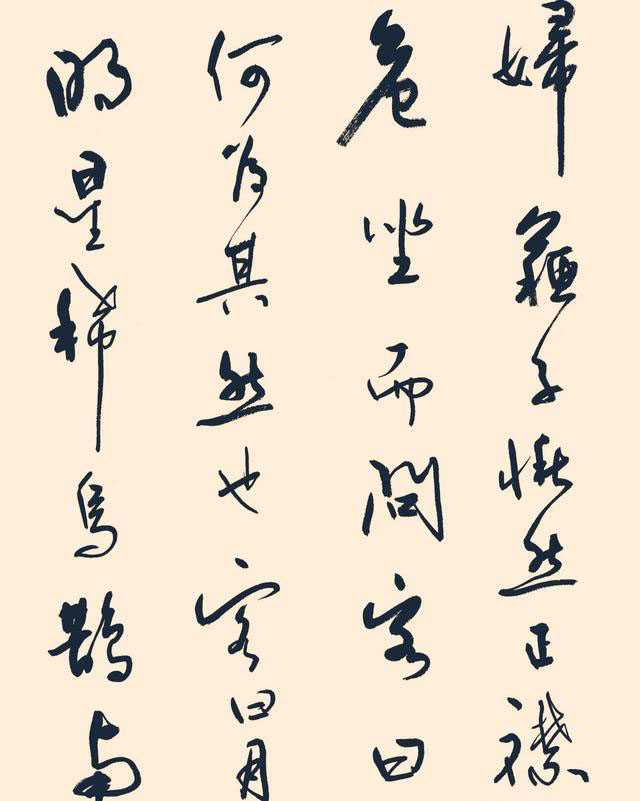 婦蘇子愀然正襟
危坐而問客曰
何為其然也客曰月
明星稀烏鵲南